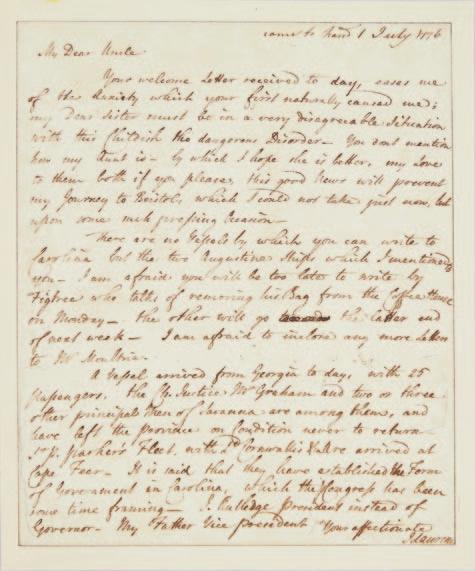 came to hand 1 July 1776
My Dear Uncle
Your welcome Letter received to day, eases me
of the Anxiety which your first naturally caused me;
my Dear Sister must be in a very disagreeable Situation
with this Childish tho dangerous Disorder — You dont mention
how my Aunt is — by which I hope she is better, my Love
to them both if you please, this good News will prevent
my Journey to Bristol, which I could not take just now, but
upon some such pressing Occasion —
There are no Vessels by which you can write to
Carolina but the two Augustine Ships which I mentioned to
you — I am afraid you will be too late to write by
who talks of removing his Bag from the Coffee House
on Monday — the other will go the latter end
of next week — I am afraid to inclose any more Letters
to Mr Moultrie —
A Vessel arrived from Georgia to day, with 25
passengers, the Cf. Justice, Mr Graham and two or three
other principal Men of Savanna are among them, and
have left the province on Condition never to return —
Sr P. Parkers Fleet, with Ld Cornwallis &c are arrived at
Cape Fear — It is said that they have established the Form
of Government in Carolina, which the Congress has been
some time framing — J. Rutledge president instead of
Governor — My Father Vice president Your affectionate
J Laurens